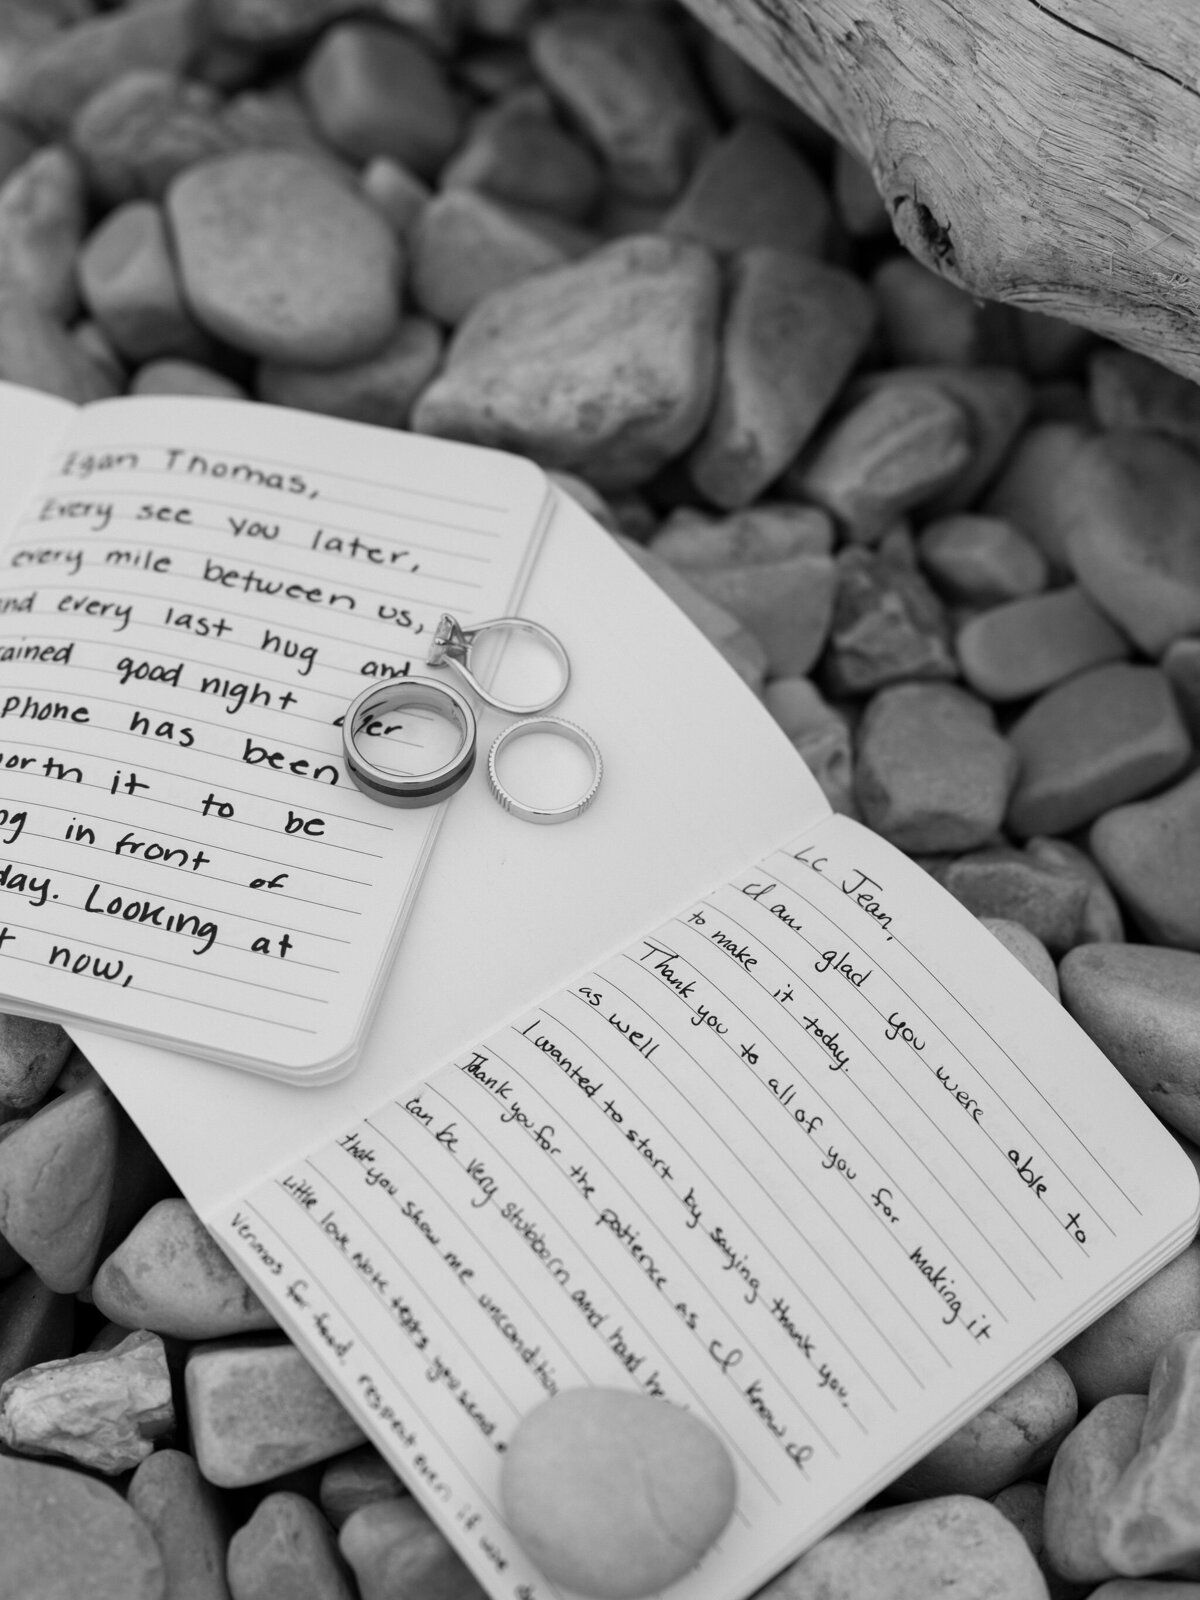 Egan Thomas,
Every see you later,
every mile between us,
and every last hug and
good night
phone has been
worth it to be
in front of
day. Looking at
now,
LC Jean,
I am glad you were able to
to make it today.
Thank you to all of you for making it
as well
I wanted to start by saying thank you.
Thank you for the patience as I know I
can be very stubborn and hard
that you show me
little love note texts you send
for food, respect even if we